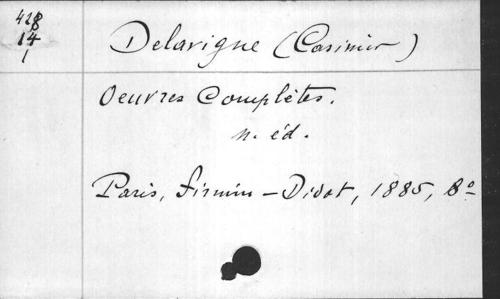 428
14
1
Delavigne (Casimir)
Oeuvres Complètes.
n. éd.
Paris, Firmin-Didot, 1885, 8º